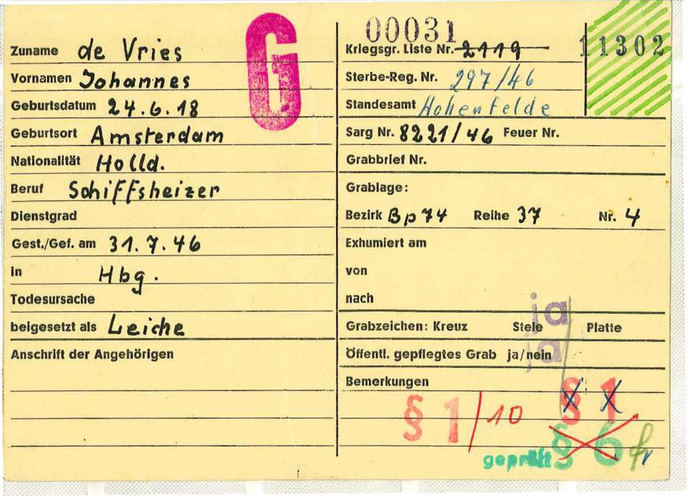 Zuname de Vries
Vornamen Johannes
Geburtsdatum 24.6.18
Geburtsort Amsterdam
Nationalität Holld.
Beruf Schiffsheizer
Dienstgrad
Gest./Gef. am 31.7.46
in Hbg.
Todesursache
beigesetzt als Leiche
Anschrift der Angehörigen
G
00031
Kriegsgr. Liste Nr. 2119
11302
Sterbe-Reg. Nr. 297/46
Standesamt Hohenfelde
Sarg Nr. 8221/46 Feuer Nr.
Grabbrief Nr.
Grablage:
Bezirk Bp74 Reihe 37 Nr. 4
Exhumiert am
von
nach
ja
Grabzeichen: Kreuz Stele Platte
Öffentl. gepflegtes Grab ja/nein
ja
Bemerkungen
§ 1
§ 1/10
geprüft § 6